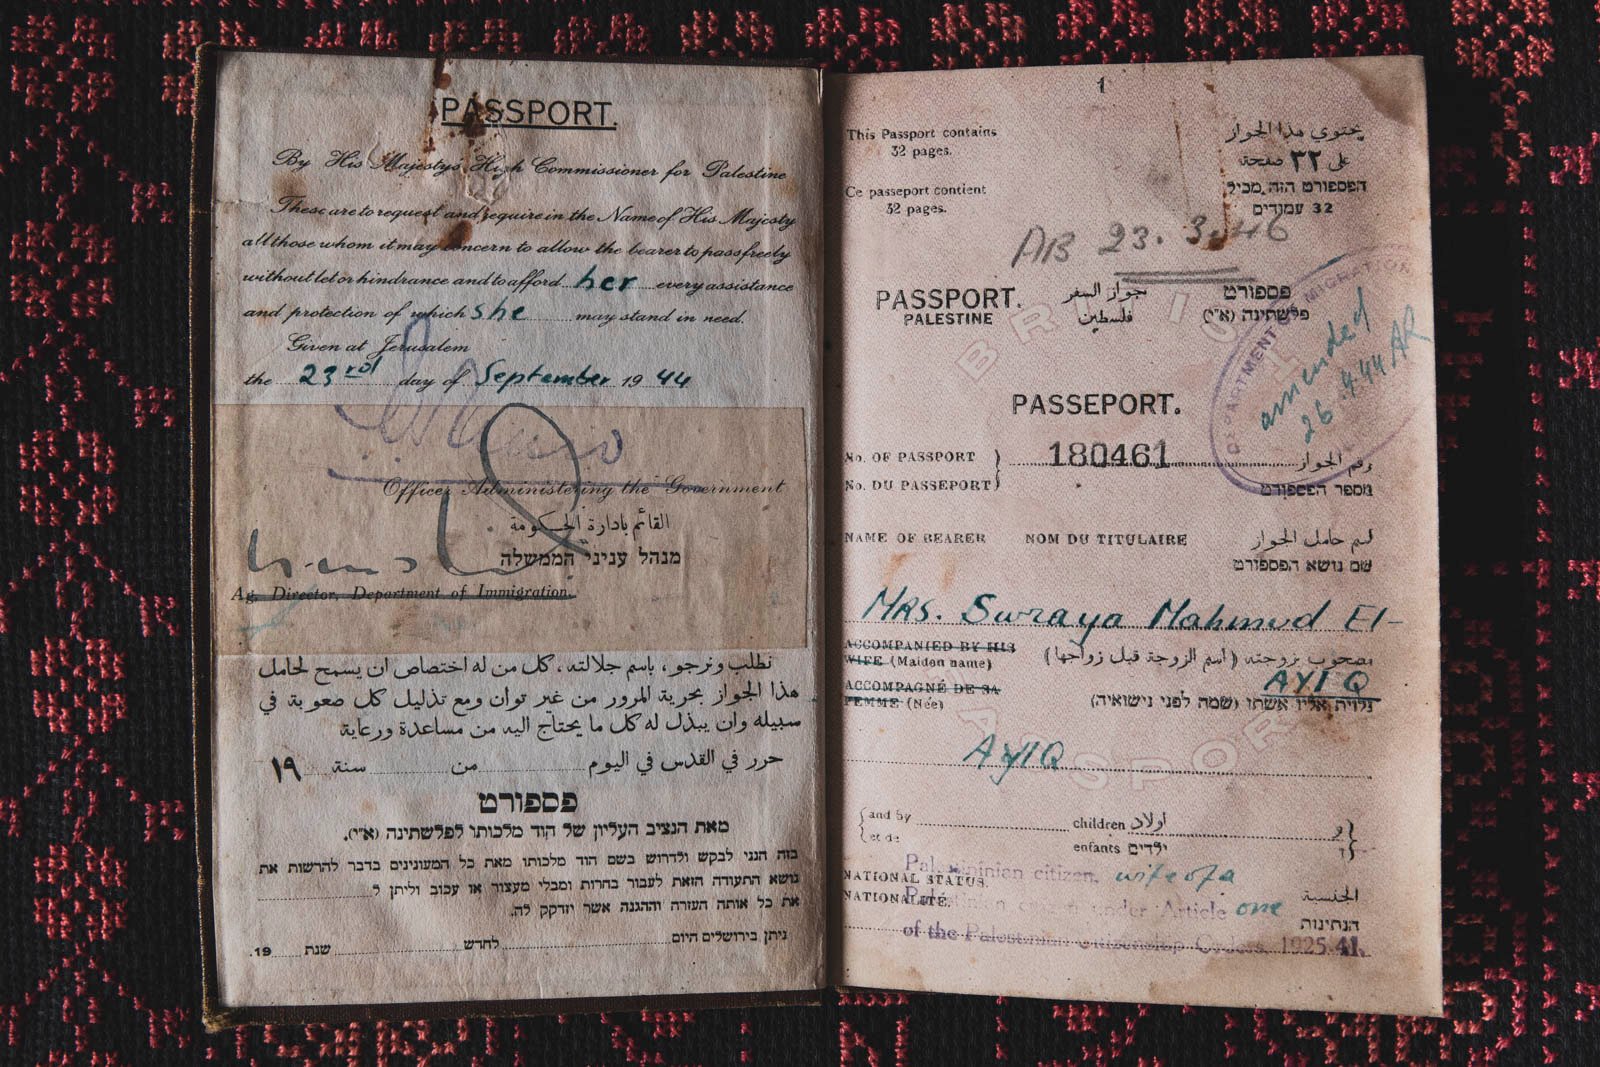 PASSPORT.
By His Majesty's High Commissioner for Palestine
These are to request and require in the Name of His Majesty
all those whom it may concern to allow the bearer to pass freely
without let or hindrance and to afford her every assistance
and protection of which she may stand in need.
Given at Jerusalem
the 23rd day of September 1944
Officer Administering the Government
القائم بادارة الحكومة
מנהל עניני הממשלה
Ag. Director, Department of Immigration.
نطلب ونرجو، باسم جلالته، كل من له اختصاص ان يسمح لحامل
هذا الجواز بحرية المرور من غير توان ومع تذليل كل صعوبة في
سبيله وان يبذل له كل ما يحتاج اليه من مساعدة ورعاية
حرر في القدس في اليوم من سنة ١٩
פספורט
מאת הנציב העליון של הוד מלכותו לפלשתינה (א"י).
בזה הנני לבקש ולדרוש בשם הוד מלכותו מאת כל המעונינים בדבר להרשות את
נושא התעודה הזאת לעבור בחרות ומבלי מעצור או עכוב וליתן ל
את כל אותה העזרה וההגנה אשר יזדקק לה.
ניתן בירושלים היום לחדש שנת 19.
1
This Passport contains
32 pages.
يحتوي هذا الجواز
على ٣٢ صفحة
Ce passeport contient
32 pages.
הפספורט הזה מכיל
32 עמודים
AB 23.3.46
PASSPORT.
PALESTINE
جواز السفر
فلسطين
פספורט
פלשתינה (א"י)
BRITISH
PASSPORT
DEPARTMENT OF MIGRATION
amended
26.4.44 AR
PASSEPORT.
No. OF PASSPORT
No. DU PASSEPORT
180461
رقم الجواز
מספר הפספורט
NAME OF BEARER NOM DU TITULAIRE اسم حامل الجواز
שם נושא הפספורט
MRS. Suraya Mahmud El-
ACCOMPANIED BY HIS
WIFE (Maiden name)
مصحوب بزوجته (اسم الزوجة قبل زواجها)
AYIQ
ACCOMPAGNÉ DE SA
FEMME (Née)
נלוית אליו אשתו (שמה לפני נישואיה)
AYIQ
and by children اولاد و
et de enfants ילדים ו
NATIONAL STATUS.
NATIONALITÉ.
الجنسية
הנתינות
Palestinian citizen, wife of a
Palestinian citizen under Article one
of the Palestinian Citizenship Orders, 1925-41.